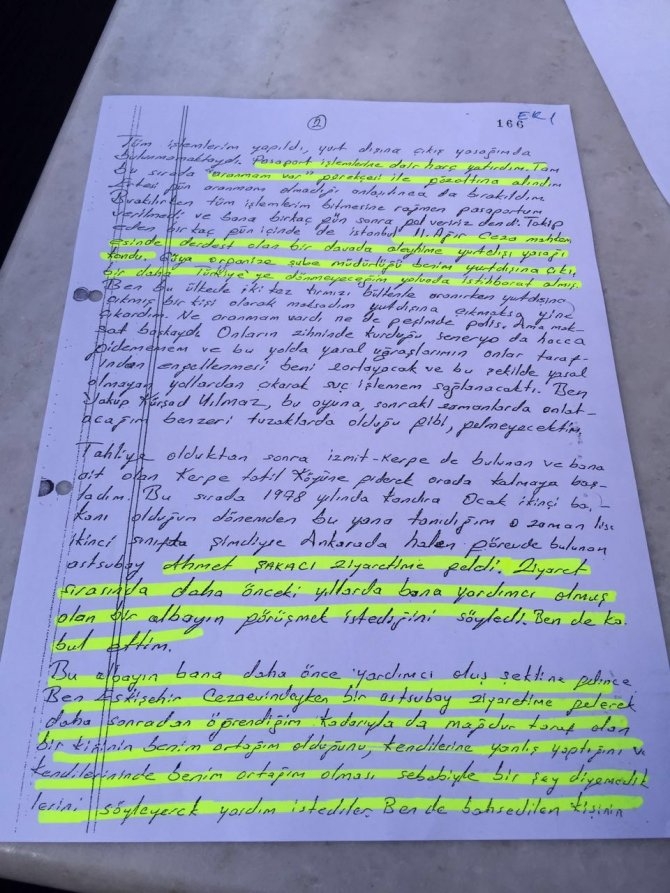 2
166
EK 1
Tüm işlemlerim yapıldı, yurt dışına çıkış yasağımda
bulunmamaktaydı. Pasaport işlemlerine dair harç yatırdım. Tam
bu sırada "aranmam var" gerekçesi ile gözaltına alındım
Ertesi gün aranmam olmadığı anlaşılınca da bırakıldım
Bırakılırken tüm işlemlerim bitmesine rağmen pasaportum
verilmedi ve bana birkaç gün sonra gel verirsiniz dendi. Takip
eden birkaç gün içinde de istanbul 11. Ağır Ceza mahkem
esinde derdest olan bir davada aleyhime yurtdışı yasağı
kondu. Güya organize şube müdürlüğü benim yurtdışına çıkıp
bir daha Türkiye'ye dönmeyeceğim yolunda istihbarat almış.
Ben bu ülkede iki kez kırmızı bültenle aranırken yurtdışına
çıkmış bir kişi olarak maksadım yurtdışına çıkmaksa yine
çıkardım. Ne aranmam vardı ne de peşimde polis. Ama mak-
sat başkaydı. Onların zihninde kurduğu seneryo da hacca
gidememem ve bu yolda yasal uğraşlarımın onlar taraf-
ından engellenmesi beni zorlayacak ve bu şekilde yasal
olmayan yollardan çıkarak suç işlemem sağlanacaktı. Ben
Yakup Kürşad Yılmaz, bu oyuna, sonraki zamanlarda anlat-
acağım benzeri tuzaklarda olduğu gibi, gelmeyecektim.
Tahliye olduktan sonra izmit-Kerpe de bulunan ve bana
ait olan Kerpe tatil Köyüne giderek orada kalmaya baş-
ladım. Bu sırada 1978 yılında Kandıra Ocak ikinci ba,-
kanı olduğum dönemden bu yana tanıdığım o zaman lise
ikinci sınıfta şimdiyse Ankarada halen görevde bulunan
astsubay Ahmet ŞAKACI ziyaretime geldi. Ziyaret
sırasında daha önceki yıllarda bana yardımcı olmuş
olan bir albayın görüşmek istediğini söyledi. Ben de ka
bul ettim.
Bu albayın bana daha önce yardımcı oluş şekline gelince
Ben Eskişehir Cezaevindeyken bir astsubay ziyaretime gelerek
daha sonradan öğrendiğim kadarıyla da mağdur taraf olan
bir kişinin benim ortağım olduğunu, kendilerine yanlış yaptığını ve
kendilerininde benim ortağım olması sebebiyle bir şey diyemedik
lerini söyleyerek yardım istediler. Ben de bahsedilen kişinin